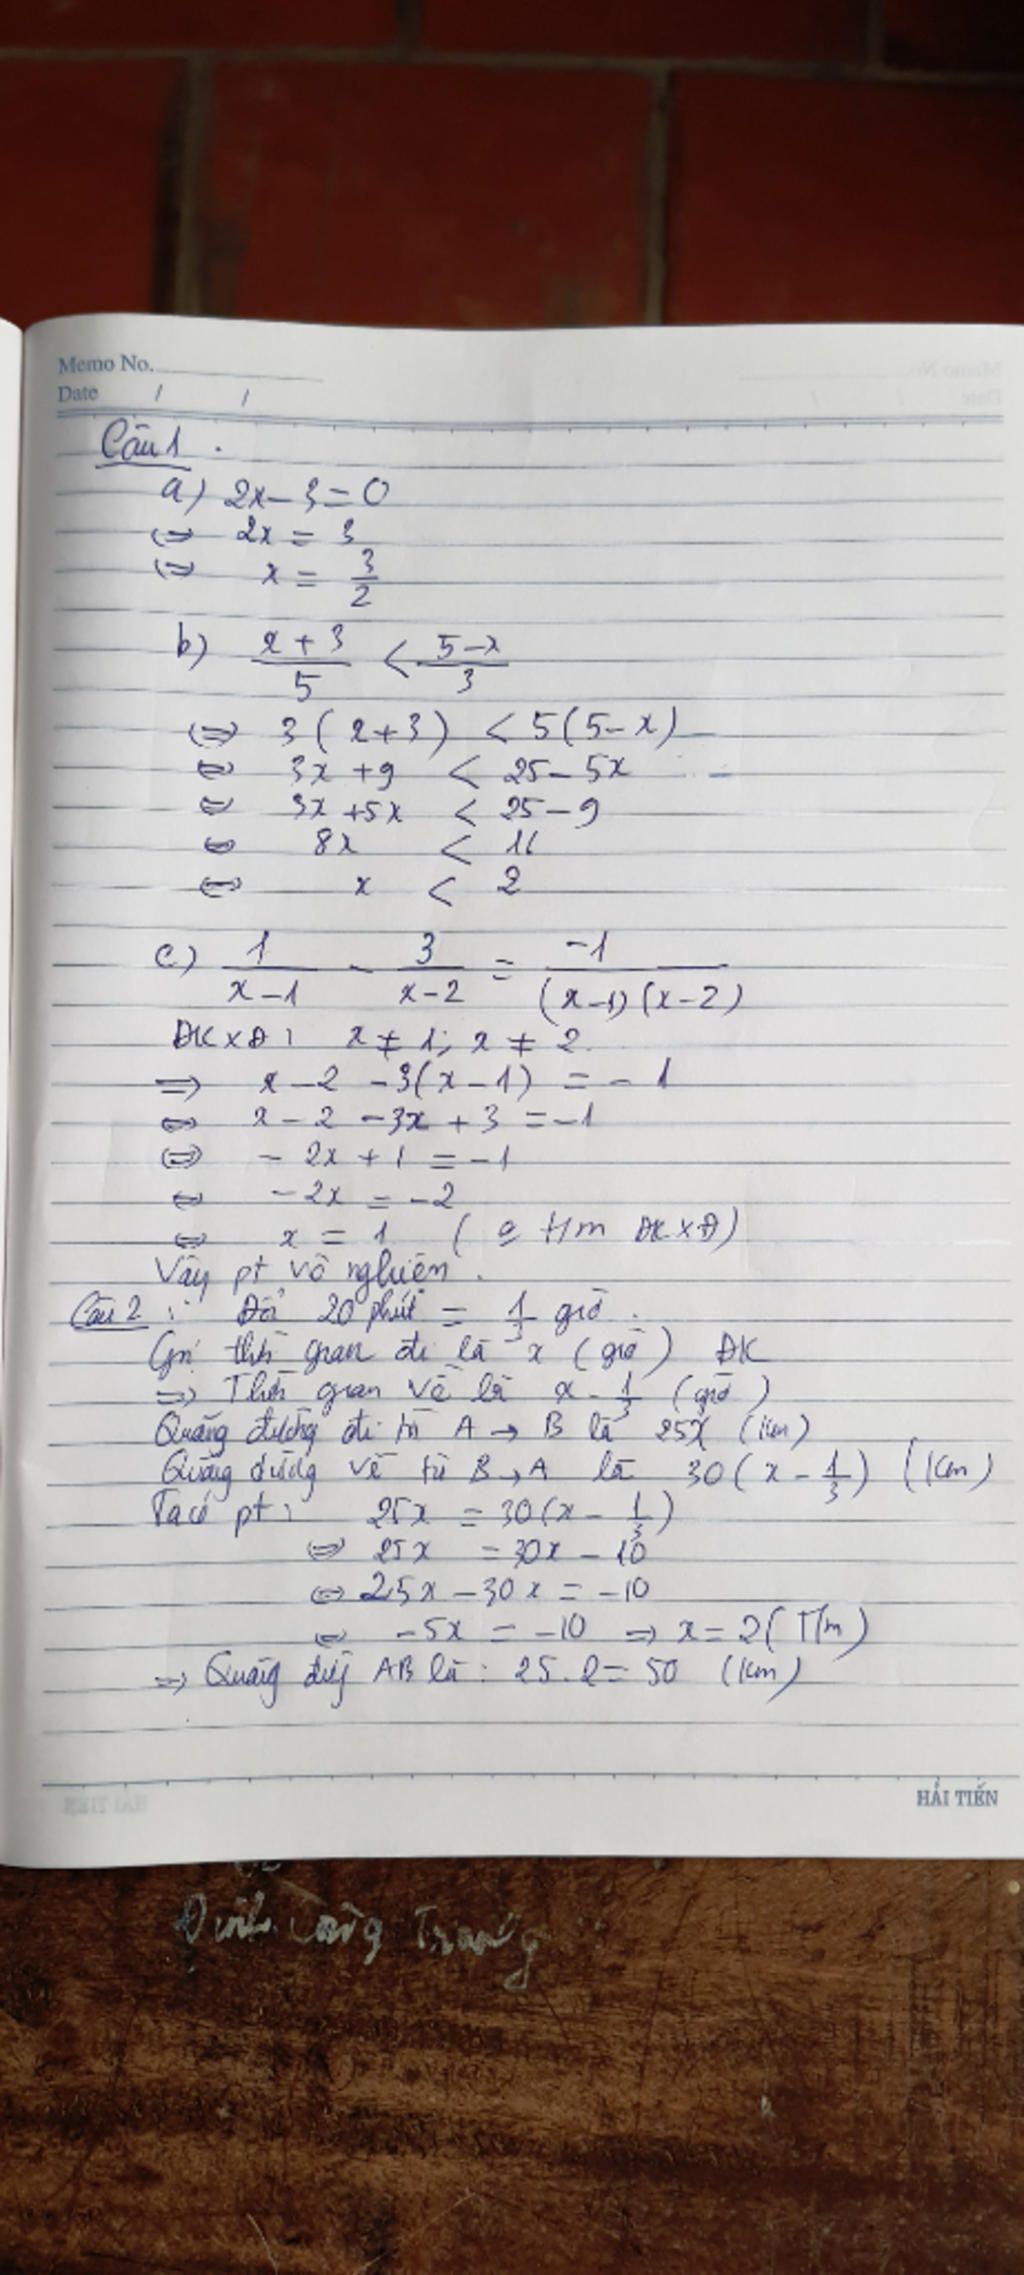 Memo No.
Date / /
Câu 1.
a) 2x - 3 = 0
<=> 2x = 3
<=> x = 3/2
b) (x + 3)/5 < (5 - x)/3
<=> 3(x + 3) < 5(5 - x)
<=> 3x + 9 < 25 - 5x
<=> 3x + 5x < 25 - 9
<=> 8x < 16
<=> x < 2
c) 1/(x - 1) - 3/(x - 2) = -1/((x - 1)(x - 2))
ĐKXĐ: x ≠ 1; x ≠ 2.
=> x - 2 - 3(x - 1) = -1
<=> x - 2 - 3x + 3 = -1
<=> -2x + 1 = -1
<=> -2x = -2
<=> x = 1 (t/m ĐKXĐ)
Vậy pt vô nghiệm.
Câu 2: Đổi 20 phút = 1/3 giờ.
Gọi thời gian đi là x (giờ) ĐK
=> Thời gian về là x - 1/3 (giờ)
Quãng đường đi từ A → B là 25x (km)
Quãng đường về từ B → A là 30(x - 1/3) (km)
Ta có pt: 25x = 30(x - 1/3)
<=> 25x = 30x - 10
<=> 25x - 30x = -10
<=> -5x = -10 => x = 2 (T/m)
=> Quãng đg AB là: 25.2 = 50 (km)
HẢI TIẾN
Trang